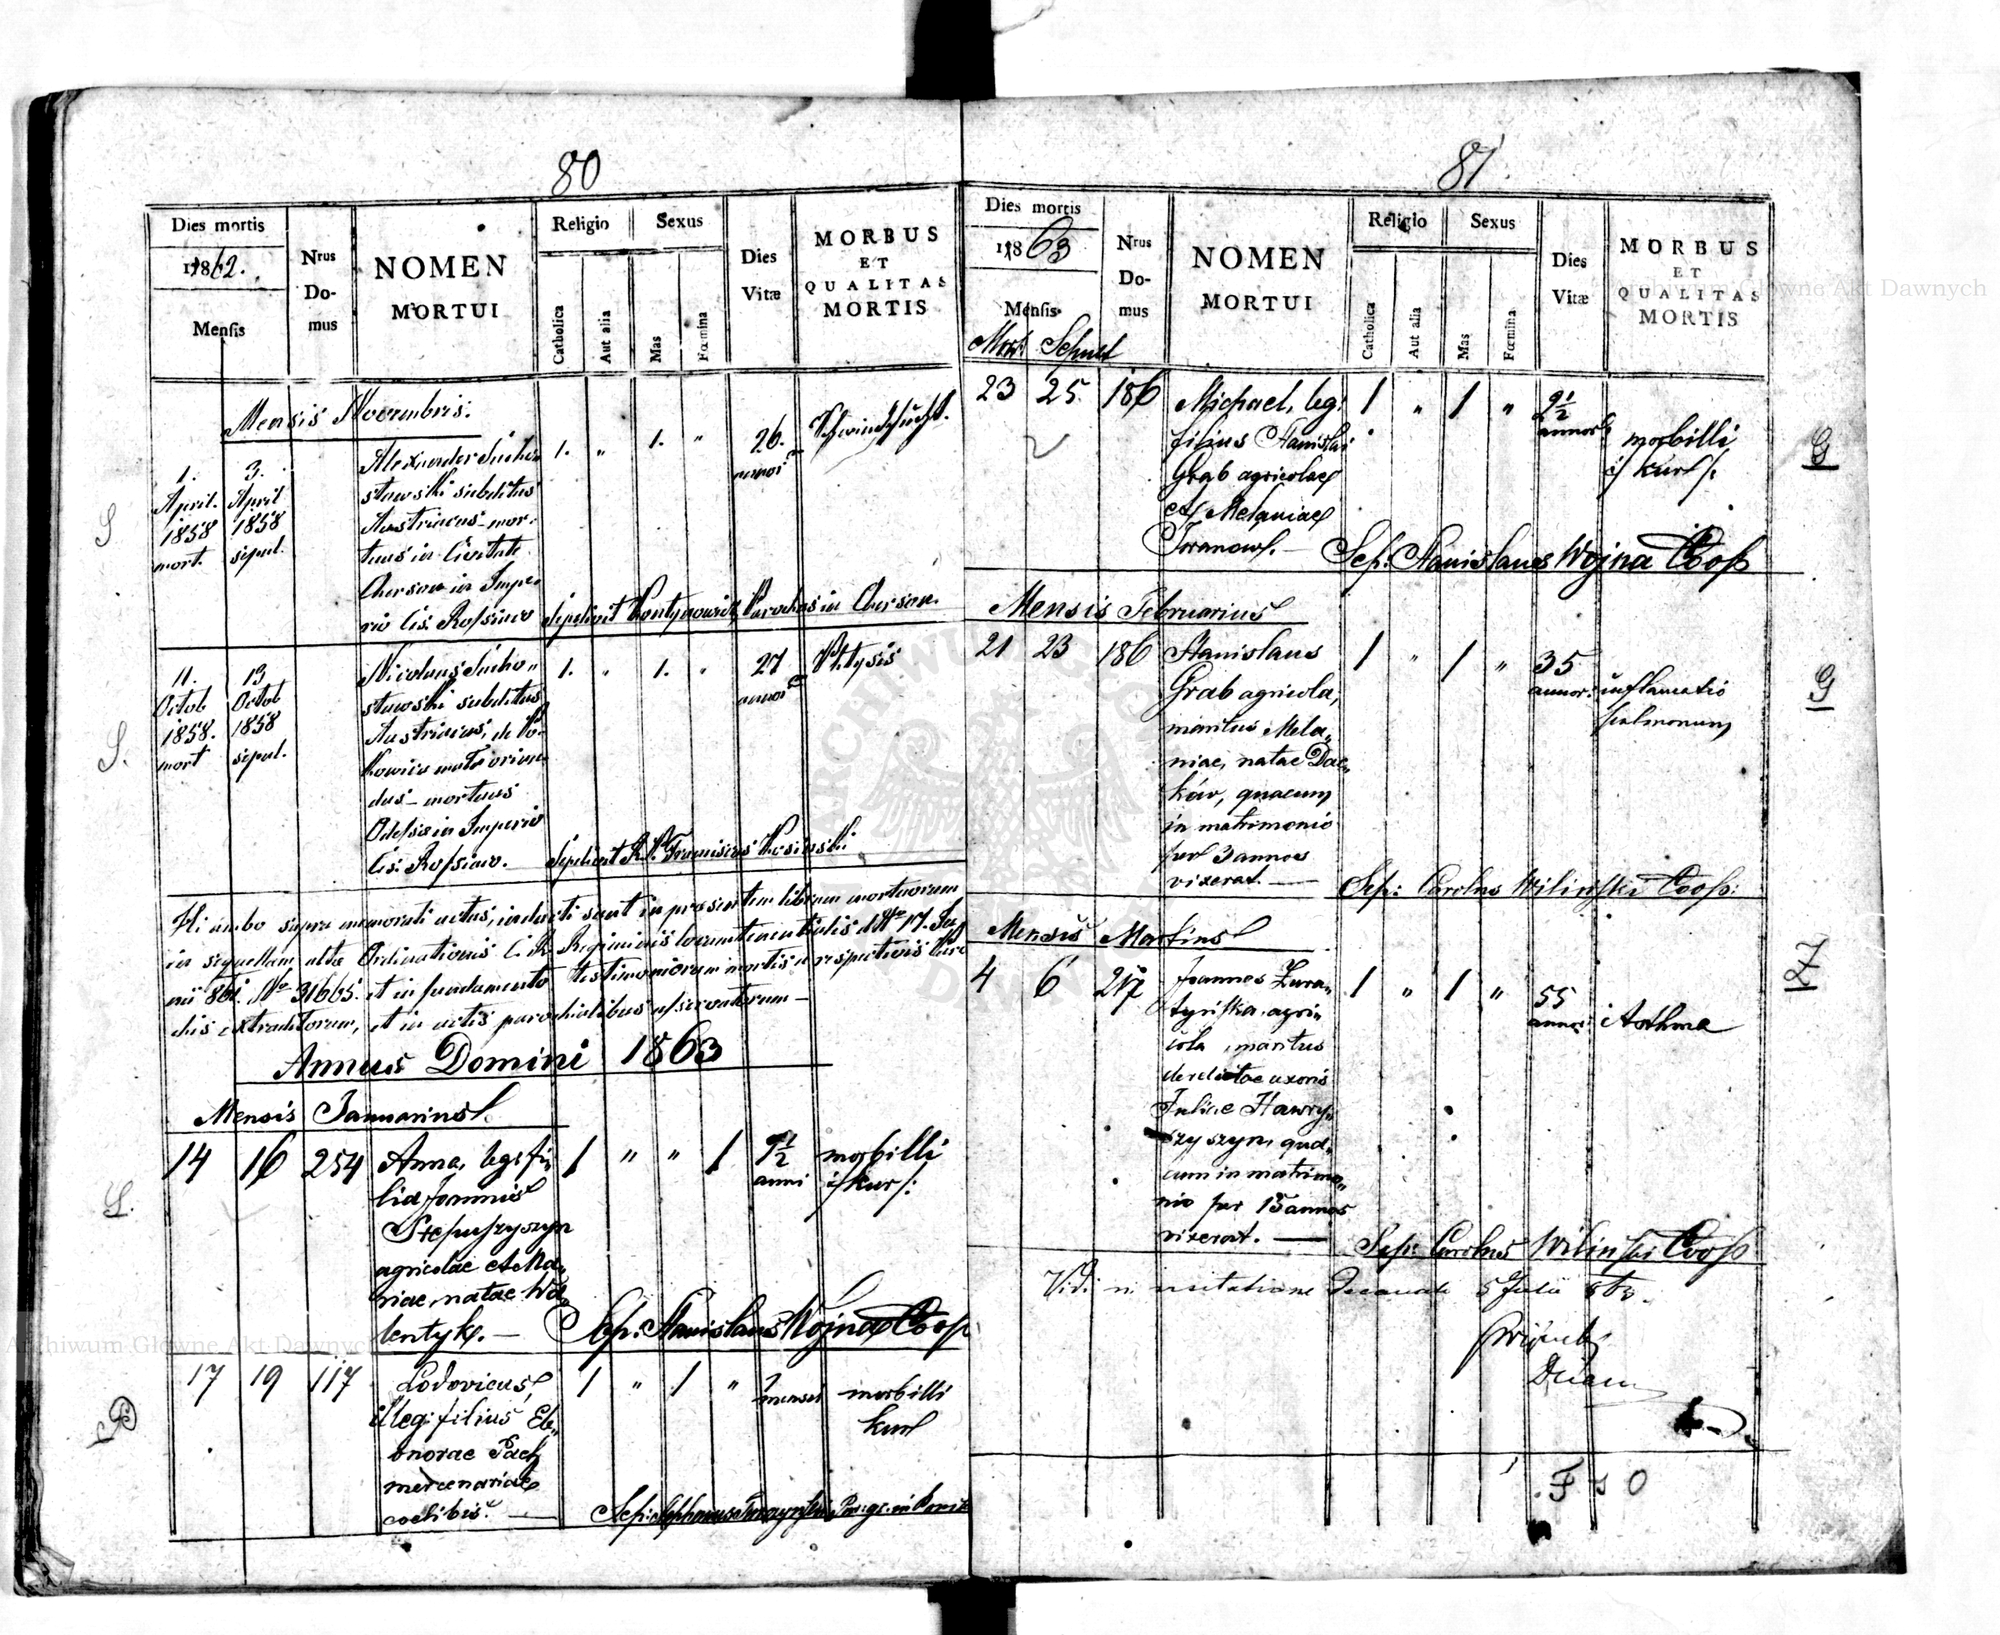 80
Dies mortis
1862.
Mensis
Nrus
Do-
mus
NOMEN
MORTUI
Religio
Catholica
Aut alia
Sexus
Mas
Fœmina
Dies
Vitæ
MORBUS
ET
QUALITAS
MORTIS
Mensis Novembris.
S
1.
April.
1858
mort.
3.
April
1858
sepul.
Alexander Sucho
stawski subditus
Austriacus mor-
tuus in Civitate
Cherson in Impe-
rio Cis. Rossiaco
1. " 1. "
26.
annor
Schwindsucht.
Sepelivit Parochus in Cherson.
S.
11.
Octob
1858.
mort
13
Octob
1858
sepul.
Nicolaus Sucho"
stawski subditus
Austriacus, de
oriun
dus mortuus
Odessa in Imperio
Cis. Rossiaco.
1. " 1. "
27
annor
Phtysis
Sepelivit R. P. Franciscus Kosinski
Hi ambo supra memorati actus, inducti sunt in praesentem librum mortuorum
in sequellam altae Ordinationis C. R. Regiminis locumtenentialis dto 17. Ju
nii 861. No 31665. et in fundamento testimoniorum mortis a respectivis Paro
chis extraditorum, et in actis parochialibus asservatorum
Annus Domini 1863
Mensis Januarius
S.
14 16 254
Anna, leg: fi-
lia Joannis
Stepuszyszyn
agricolae et Ma-
riae, natae Wa-
lentyk.
1 " " 1
1 1/2
anni
morbilli
/: kur :/
Sep: Stanislaus Wojna Coop
P
17 19 117
Lodovicus,
illeg: filius Ele-
onorae Pach
mercenariae
coelibis.
1 " 1 "
7
menses
morbilli
kur
81
Dies mortis
1863
Mensis
Mort Sepult
Nrus
Do-
mus
NOMEN
MORTUI
Religio
Catholica
Aut alia
Sexus
Mas
Fœmina
Dies
Vitæ
MORBUS
ET
QUALITAS
MORTIS
23 25. 186
Michael, leg:
filius Stanislai
Grab agricolae
et Melaniae
1 " 1 "
2 1/2
annor
morbilli
/: kur :/
G
Sep: Stanislaus Wojna Coop
Mensis Februarius
21 23 186
Stanislaus
Grab agricola,
maritus Mela-
niae, natae Dac-
ków, quacum
in matrimonio
per 3 annos
vixerat.
1 " 1 "
35
annor:
inflamatio
pulmonum
G
Sep: Carolus Wilinski Coop:
Mensis Martius
4 6 217
Joannes Zura-
tynska, agri-
cola, maritus
derelictae uxoris
Juliae Hawry-
szyszyn, qua-
cum in matrimo-
nio per 15 annos
vixerat.
1 " 1 "
55
annor:
Asthma
Z
Sep: Carolus Wilinski Coop
Vidi in visitatione Decanali 5 Julii
Archiwum Główne Akt Dawnych
Archiwum Główne Akt Dawnych